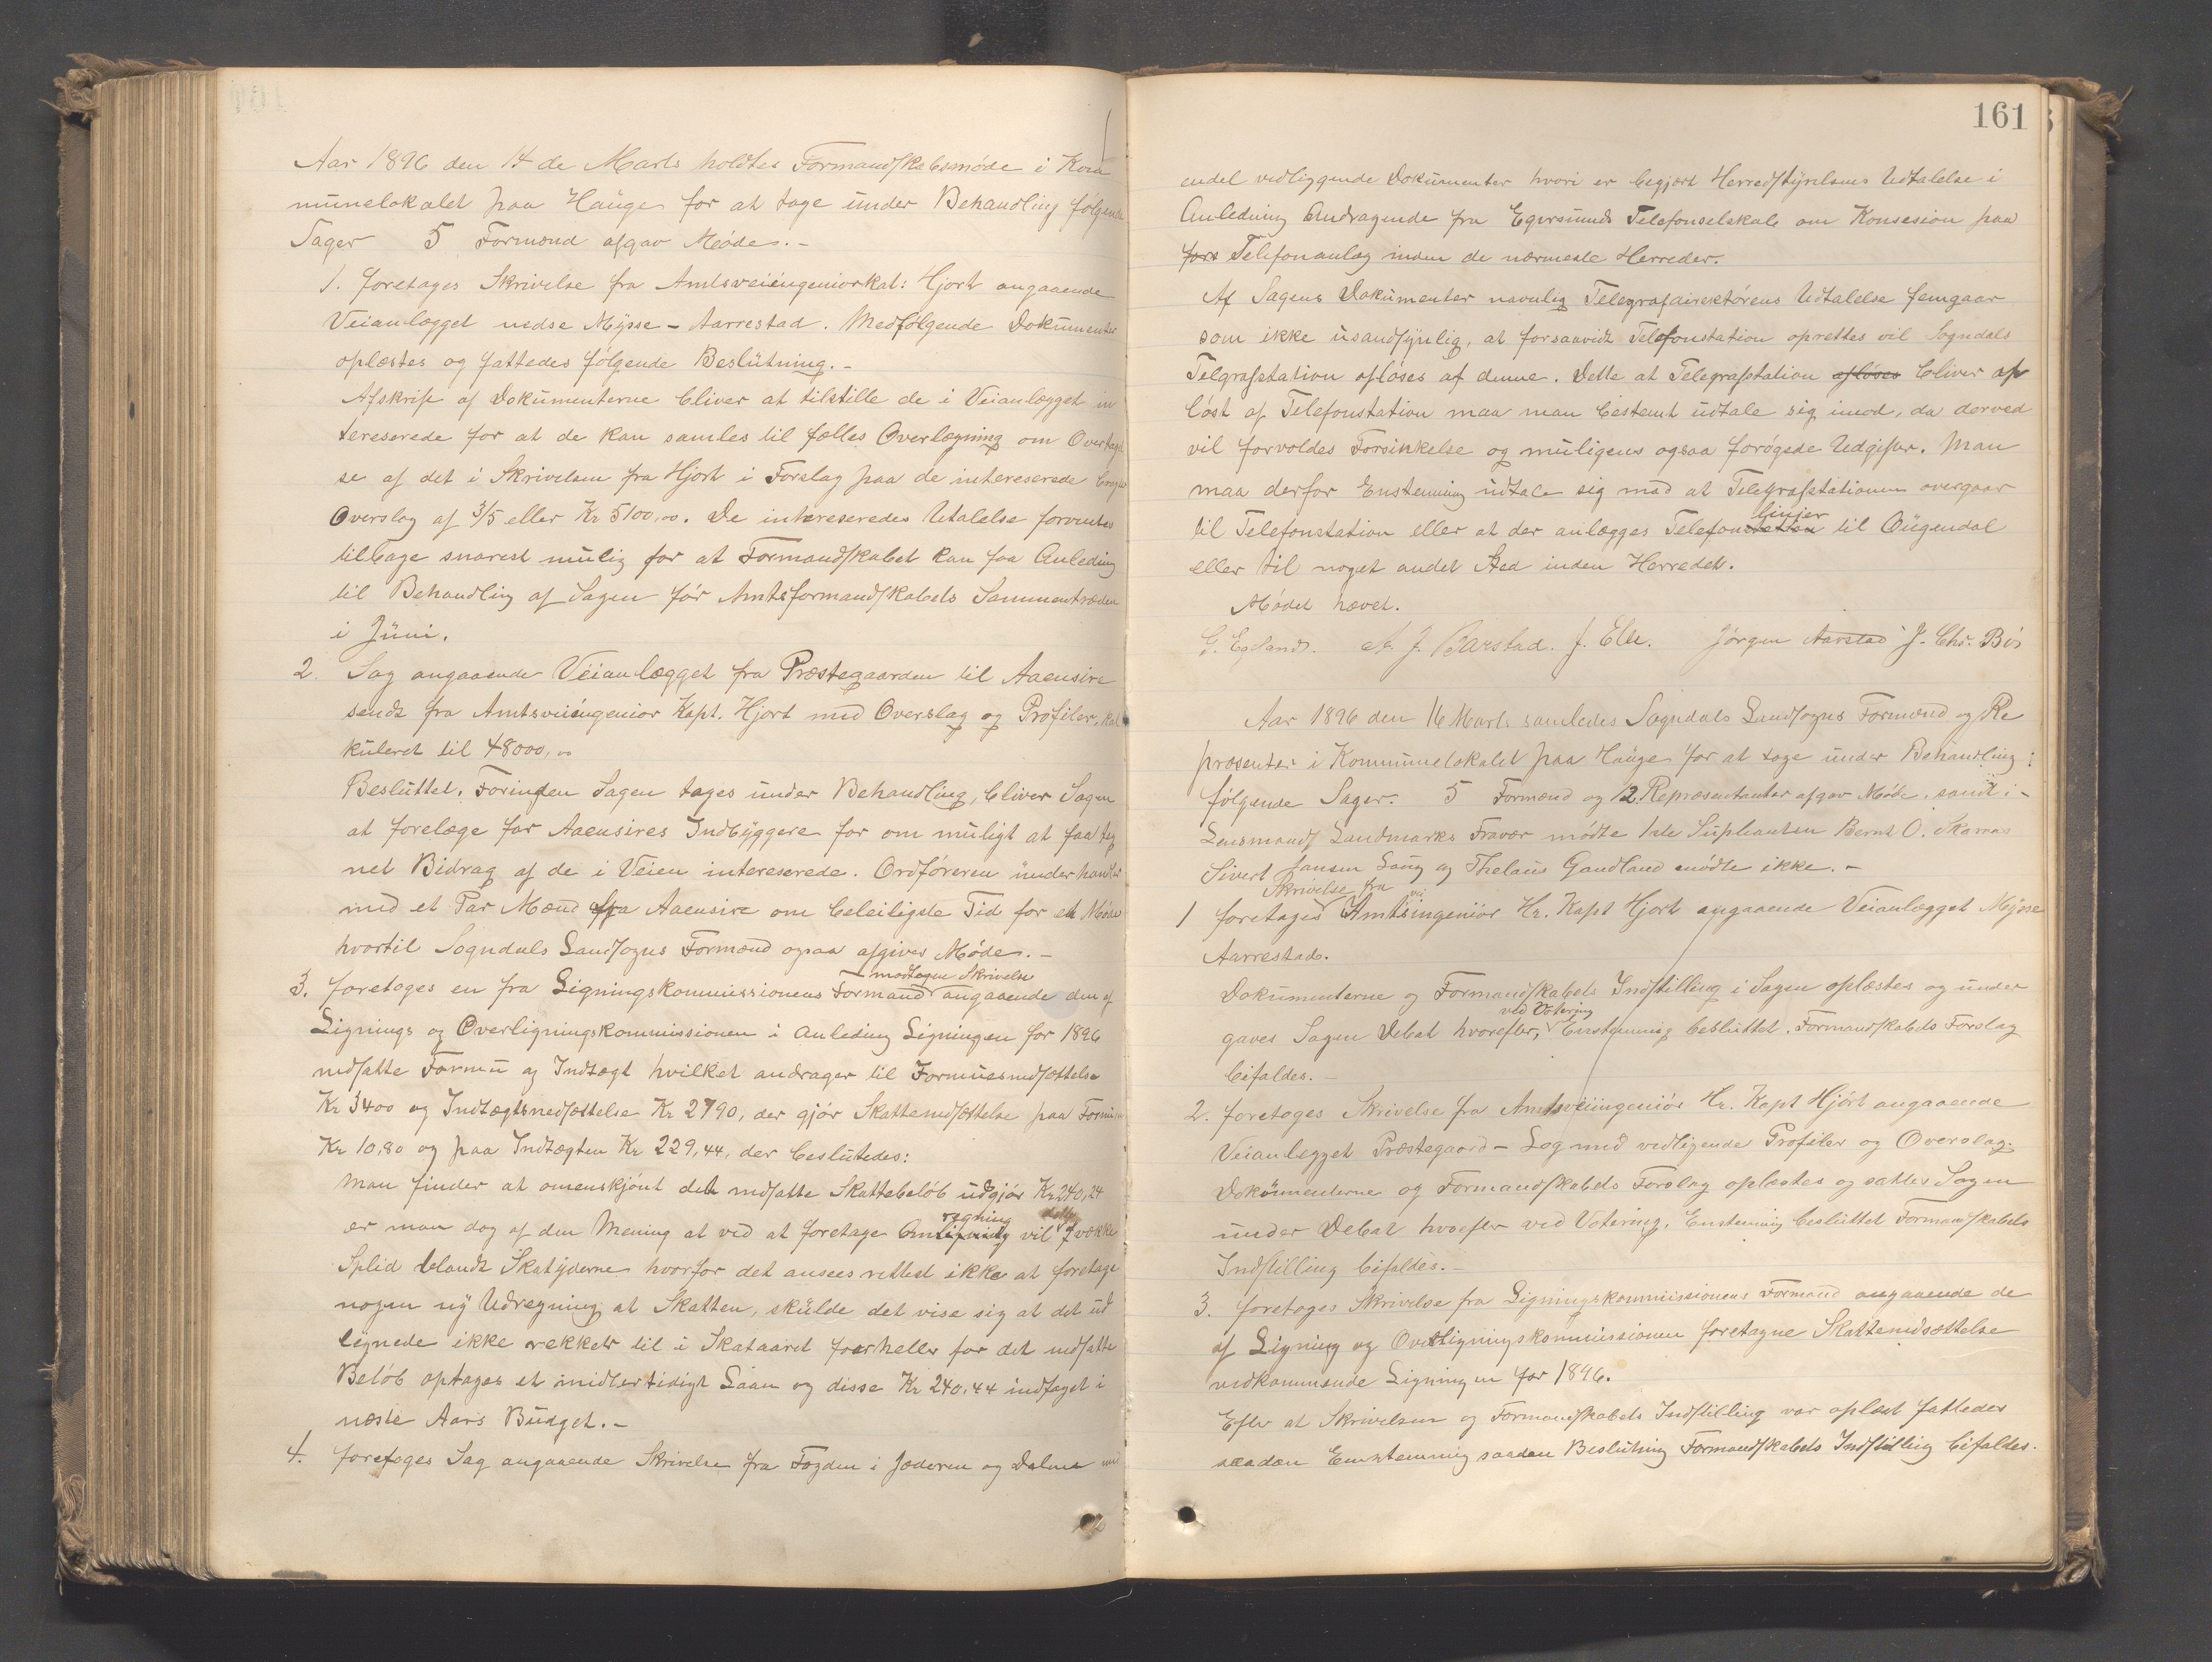 Aar 1896 den 14 de Marts holdtes Formandskabsmøde i Kom
munelokalet paa Hauge for at tage under Behandling følgende
Sager 5 Formænd afgav Møde.-
1. foretages Skrivelse fra Amtsveiingeniørkat: Hjort angaaende
Veianlægget nedse Mysse - Aarrestad. Medfølgende Dokumenter
oplæstes og fattedes følgende Beslutning.-
Afskrift af Dokumenterne bliver at tilstille de i Veianlægget in
tereserede for at de kan samles til fælles Overlægning om Overtagel
se af det i Skrivelsen fra Hjort i Forslag paa de intereserede
Overslag af 3/5 eller Kr 5100,00. De intereseredes Utalelse forventes
tilbage snarest mulig for at Formandskabet kan faa Anledning
til Behandling af Sagen før Amtsformandskabets Sammentræden
i Juni.
2. Sag angaaende Veianlægget fra Præstegaarden til Aaensire
sendt fra Amtsveiingeniør Kapt. Hjort med Overslag og Profiler, kal
kuleret til 48000,00
Besluttet. Foringden Sagen tages under Behandling, bliver Sagen
at forelæge for Aaensires Indbyggere for om muligt at faa teg
net Bidrag af de i Veien intereserede. Ordføreren underhandler
med et Par Mænd fra Aaensire om beleiligste Tid for et Møde
hvortil Sogndals Landsogns Formænd ogsaa afgiver Møde.-
modtagen Skrivelse
3. foretages en fra Ligningskommissionens Formand angaaende den af
Lignings og Overligningskommissionen i Anledning Ligningen for 1896
nedsatte Formu og Indtægt hvilket andrager til Formuesnedsættelse
Kr 3400 og Indtægtsnedsættelse Kr 2790, der gjør Skattenedsættelse paa Formuen
Kr 10,80 og paa Indtægten Kr 229,44, der beslutedes:
Man finder at omenskjønt det nedsatte Skattebeløb udgjør Kr 240,24
regning
er man dog af den Mening at ved at foretage Omligning vil vække
Splid blandt Skatyderne hvorfor det ansees rettest ikke at foretage
nogen ny Udregning at Skatten, skulde det vise sig at det ud
lignede ikke rekker til i Skataaret foerheller for det nedsatte
Beløb optages et midlertidigt Laan og disse Kr 240,44 indtaget i
næste Aars Budget.-
4. foretages Sag angaaende Skrivelse fra Fogden i Jæderen og Dalene
161
endel vedliggende Dokumenter hvori er begjært Herredstyrelsens Udtalelse i
Anledning Andragende fra Egersunds Telefonselskab om Konsesion paa
fors Telefonanlæg inden de nærmeste Herreder.
Af Sagens Dokumenter navnlig Telegrafdirektørens Udtalelse femgaar
som ikke usandsynlig, at forsaavidt Telefonstation oprettes vil Sogndals
Telgrafstation afløses af denne. Dette at Telegrafstation afløses bliver af
løst af Telefonstation maa man bestemt udtale sig imod, da derved
vil forvoldes Forsinkelse og muligens ogsaa forøgede Udgifter. Man
maa derfor Enstemmig udtale sig mod at Telegrafstationen overgaar
linjer
til Telefonstation eller at der anlægges Telefonstation til Øugendal
eller til noget andet Sted inden Herredet.
Mødet hævet.
G. Egeland. J. Barstad. J. Elle. Jørgen Aarstad J. Chr. Bø
Aar 1896 den 16 Marts samledes Sogndals Landsogns Formænd og Re
præsenter i Kommunelokalet paa Hauge for at tage under Behandling:
følgende Sager. 5 Formænd og 12 Repræsentanter afgav Møde, samt i-
Lensmand Landmarks Fravær mødte 1ste Supleanten Bernt O. Skaraas
Sivert Jansen Laug og Thelaus Gaudland mødte ikke.-
Skrivelse fra vei
1 foretages Amtsingeniør Hr. Kapt Hjort angaaende Veianlægget Mysse
Aarrestad.
Dokumenterne og Formandskabets Indstilling i Sagen oplæstes og under
ved Votering
gaves Sagen Debat hvorefter, Enstemmig besluttet. Formandskabets Forslag
bifaldes.-
2. foretages Skrivelse fra Amtsveiingeniør Hr. Kapt Hjort angaaende
Veianlegget Præstegaard - Log med vedligende Profiler og Overslag.
Dokumenterne og Formandskabets Forslag oplæstes og sattes Sagen
under Debat hvoefter ved Votering, Enstemmig besluttet Formandskabets
Indstilling bifaldes.-
3. foretages Skrivelse fra Ligningskommissionens Formand angaaende de
af Ligning og Overligningskommissionen foretagne Skattenedsættelse
vedkommende Ligningen for 1896.
Efter at Skrivelsen og Formandskabets Indstilling var oplæst fattedes
saadan Enstemmig saadan Beslutning Formandskabets Indstilling bifaldes.